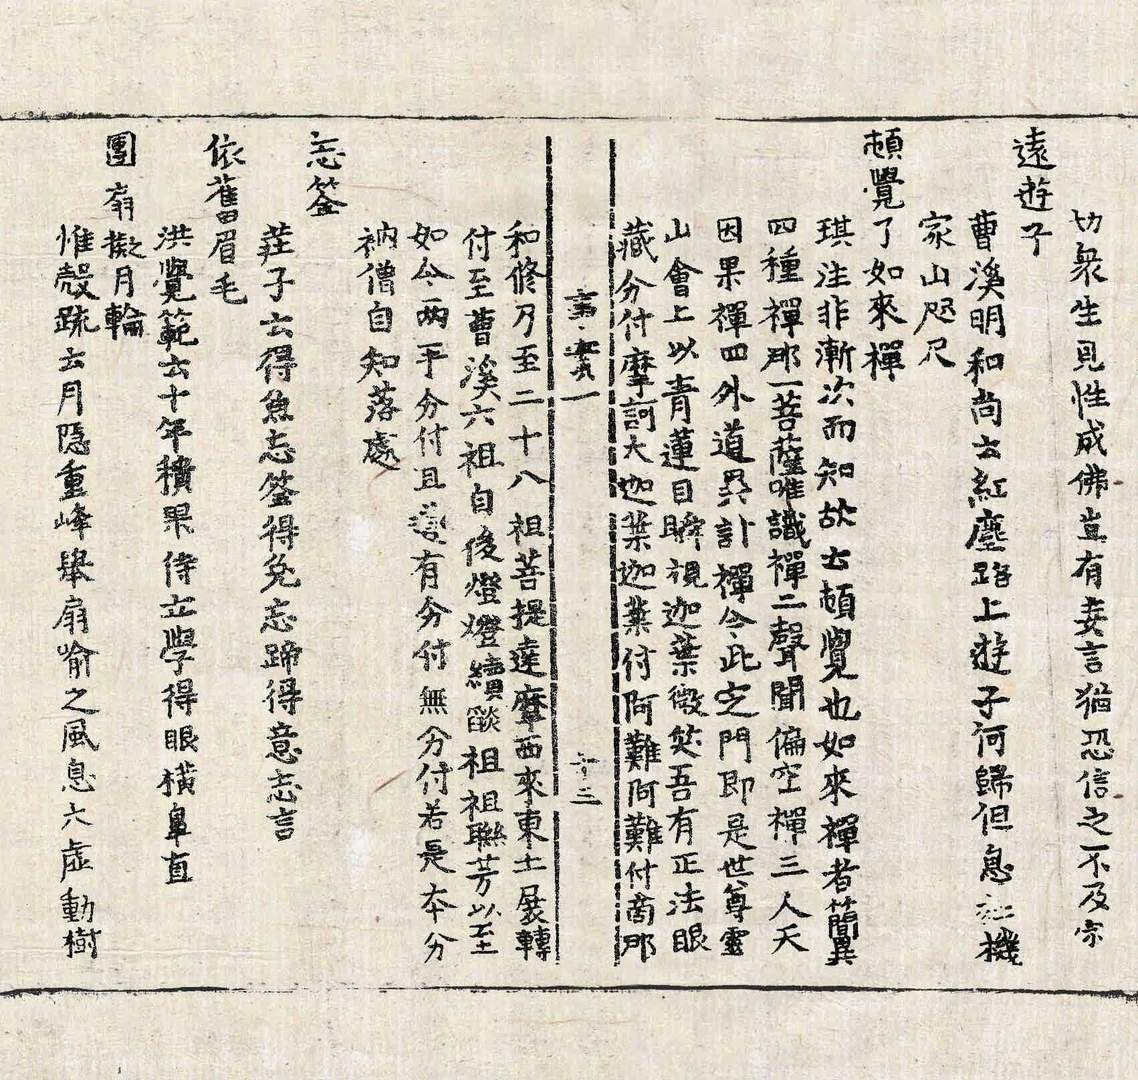 切衆生見性成佛豈有妄言猶恐信之不及宗
遠遊子
曹溪明和尚云紅塵路上遊子何歸但息機
家山咫尺
頓覺了如來禪
琪注非漸次而知故云頓覺也如來禪者簡異
四種禪那一菩薩唯識禪二聲聞偏空禪三人天
因果禪四外道異計禪今此定門即是世尊靈
山會上以青蓮目瞬視迦葉微笑吾有正法眼
藏分付摩訶大迦葉迦葉付阿難阿難付商那
和修乃至二十八祖菩提達摩西來東土展轉
付至曹溪六祖自後燈燈續燄祖祖聯芳以至
如今兩平分付且道有分付無分付若是本分
衲僧自知落處
忘筌
莊子云得魚忘筌得兔忘蹄得意忘言
依舊眉毛
洪覺範云十年積果侍立學得眼橫鼻直
團扇擬月輪
惟殼疏云月隱重峰舉扇喻之風息大虛動樹